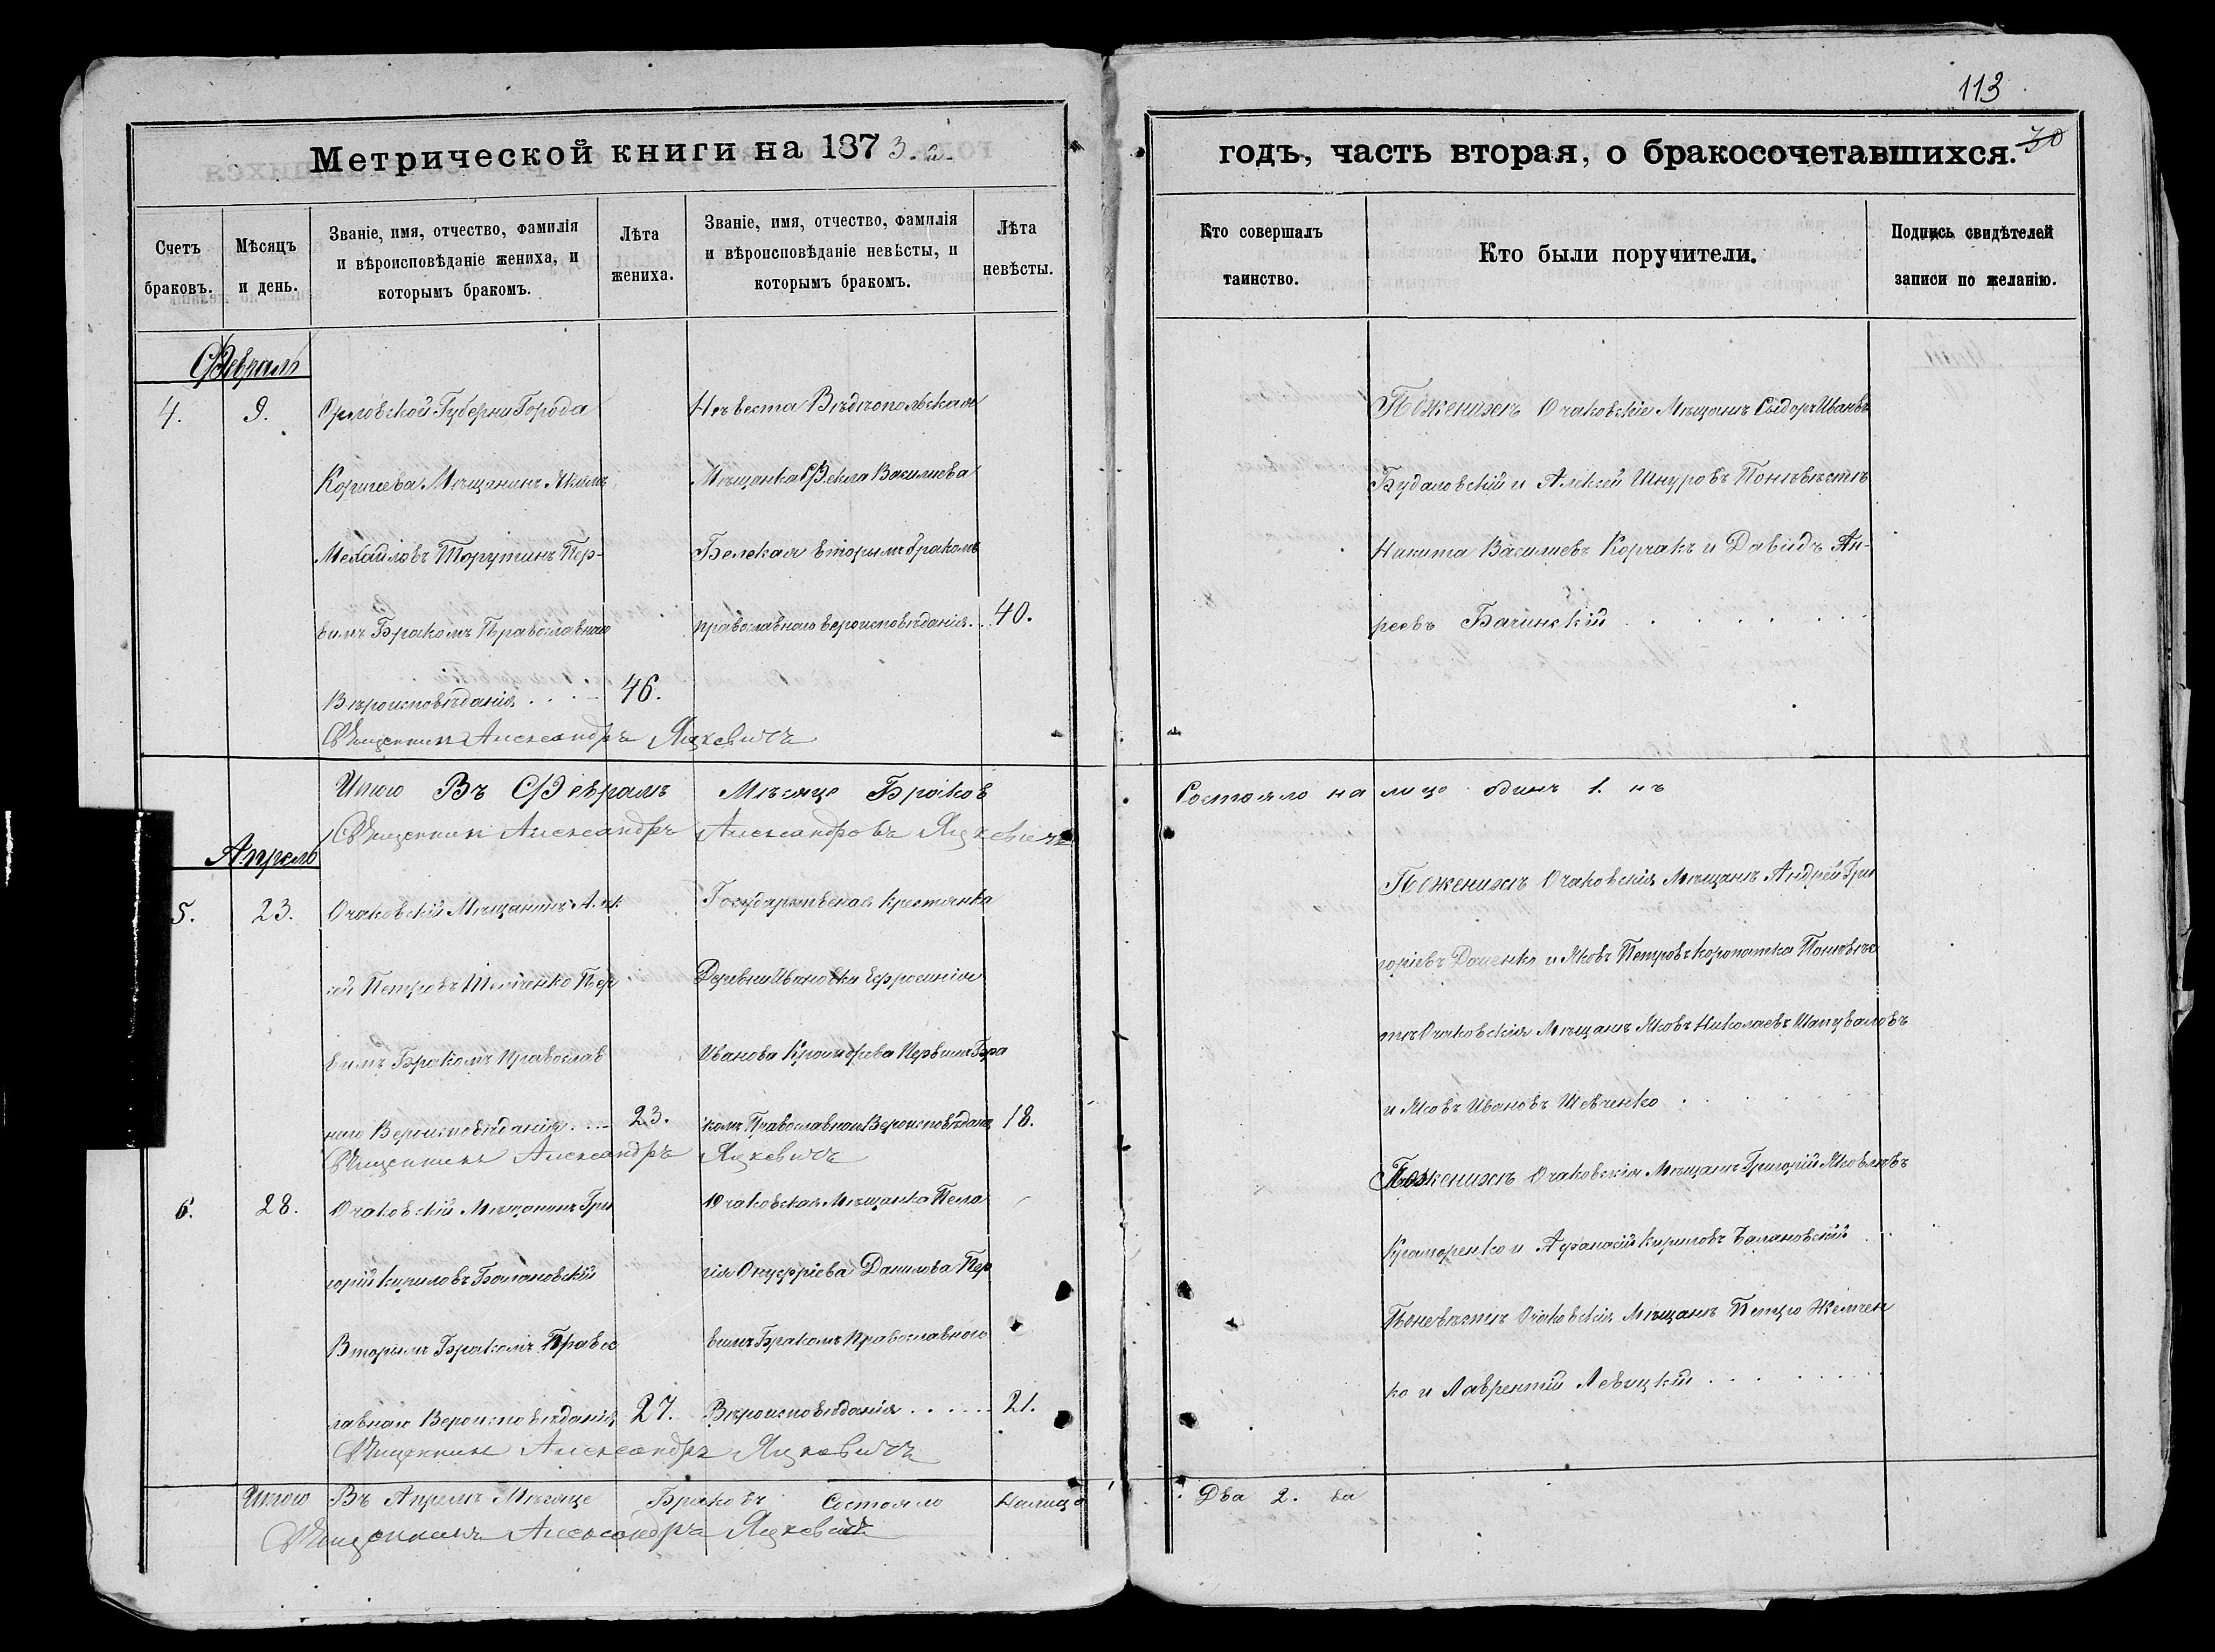 113
Метрической книги на 1873.го.
годъ, часть вторая, о бракосочетавшихся. 30
Счетъ браковъ.
Мѣсяцъ и день.
Званіе, имя, отчество, фамилія
и вѣроисповѣданіе жениха, и
которымъ бракомъ.
Лѣта
жениха.
Званіе, имя, отчество, фамилія
и вѣроисповѣданіе невѣсты, и
которымъ бракомъ.
Лѣта
невѣсты.
Кто совершалъ
таинство.
Кто были поручители.
Подпись свидѣтелей
записи по желанію.
Февраль
4.
9.
Орловской Губерни Города
Мѣщанинъ Якимъ
Михайловъ Торутинъ Пер-
вимъ Бракомъ Православнаго
Вѣроисповѣданія . . . .
46.
Невѣста
Мѣщанка Фекла Василиева
Белская вторымъ бракомъ
православнаго вероисповѣданія . .
40.
Поженихѣ Очаковскіе Мѣщане Сидоръ Ивановъ
Будаловскій и Алексей Шнуровъ Поневѣстѣ
Никита Василиевъ Корчакъ и Давидъ Ан-
реевъ Бачинскій . . . . . .
Священникъ Александръ Яцкевичъ
Итого Въ Февралѣ Мѣсяце Браков Состояло на лицо одинъ 1. нъ
Священникъ Александръ Александровъ Яцкевичъ
Апрель
5.
23.
Очаковскій Мѣщанинъ Алек
сей Петровъ Шевченко Пер
вимъ Бракомъ Православ
наго Вероисповѣданія . . .
23.
Государственая крестянка
Деревни Ивановки Ефросиния
Иванова Первимъ Бра
комъ Православнаго Вероисповѣдан
18.
Поженихѣ Очаковскія Мѣщане Андрей Гри
горіевъ Доценко и Яковъ Петровъ Коропатка Поневѣс
тѣ Очаковскія Мѣщане Яковъ Николаевъ Шаповаловъ
и Яковъ Ивановъ Шевченко . . . .
Священникъ Александръ Яцкевичъ
6.
28.
Очаковскій Мѣщанинъ Гри
горій Кириловъ Балановскій
Вторымъ Бракомъ Правос
лавнаго Вероисповѣданія
27.
Очаковская Мѣщанка Пела
гія Онуфріева Данилова Пер
вимъ Бракомъ Православного
Вѣроисповѣданія . . . . . .
21.
Поженихѣ Очаковскія Мѣщане Григорій Яковлевъ
и Афанасій Кириловъ Балановскій . .
Поневѣстѣ Очаковскія Мѣщане Петро Жемчен
ко и Лаврентій Левицкій . . . . . .
Священникъ Александръ Яцкевичъ
Итого Въ Апрелѣ Мѣсяце Браковъ Состояло Налицо Два 2. ва
Священникъ Александръ Яцкевичъ